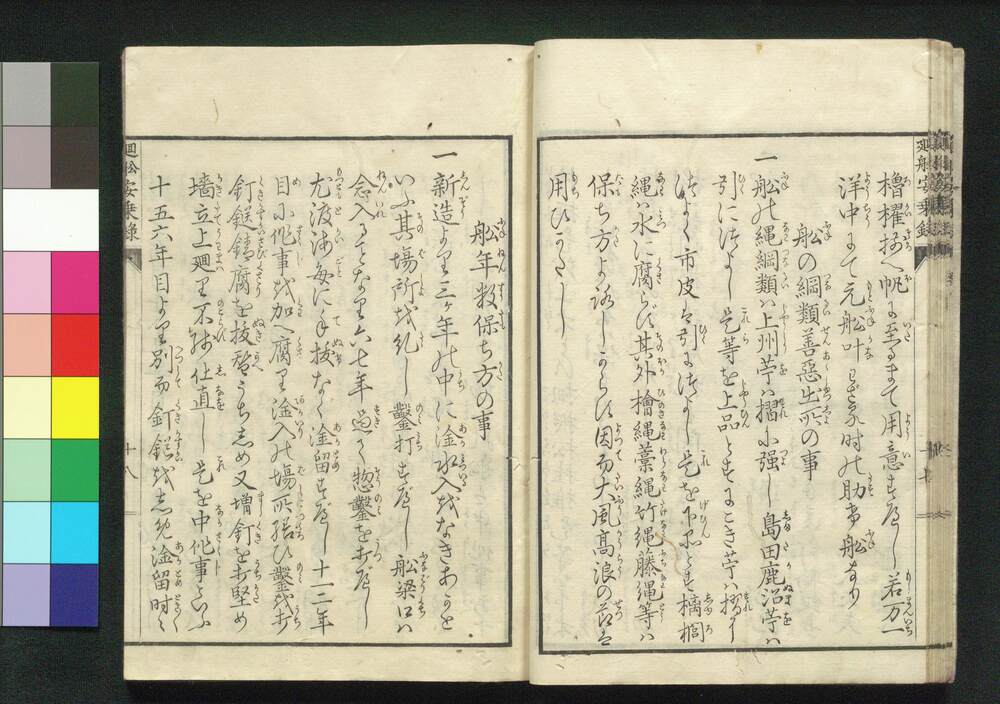 廻船安乗録
櫓櫂揚へ帆に至るまて用意すへし若万一
洋中にて元船叶わさる時の助命船なり
船の綱類善悪出所の事
一船の縄綱類ハ上州苧ハ摺小強し島田鹿沼苧ハ
引につよし是等を上品とすまこき苧ハ摺よし
つよく市皮は引につよし是を下品とす棕梠
縄ハ水に腐らす其外檜縄藁縄竹縄藤縄等ハ
保ち方よろしからす因而大風高浪の節は
用ひかたし
十七
廻船安乗録
船年数保ち方の事
一新造より三ケ年の中に淦水入をなきあかと
いふ其場所を糺し鑿打すへし船梁口ハ
念入るへきなり六七年過て惣鑿を打へし
尤渡海毎に手抜なく淦留すへし十一二年
目小作事を加へ腐り淦入の場所繕ひ鑿を打
釘鎹錆腐を抜替うちしめ又増釘を打堅め
墻立上廻り不残仕直し是を中作事といふ
十五六年目より別而釘鎹をしめ淦留時々
十八